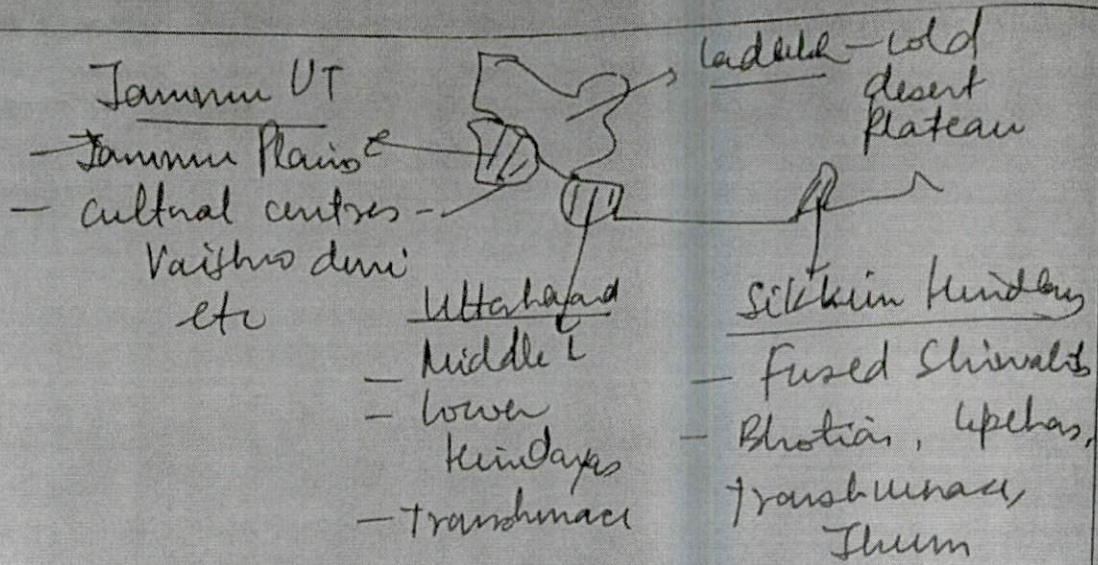 Jammu UT
- Jammu Plains
- Cultural centres -
Vaishno devi
etc
Ladakh - cold
desert
Plateau
Uttarhand
- Middle
- lower
Himalayas
- Transhumance
Sikkim Himalayas
- Fused Shiwaliks
- Bhotias, Lepchas,
Transhumance,
Jhum